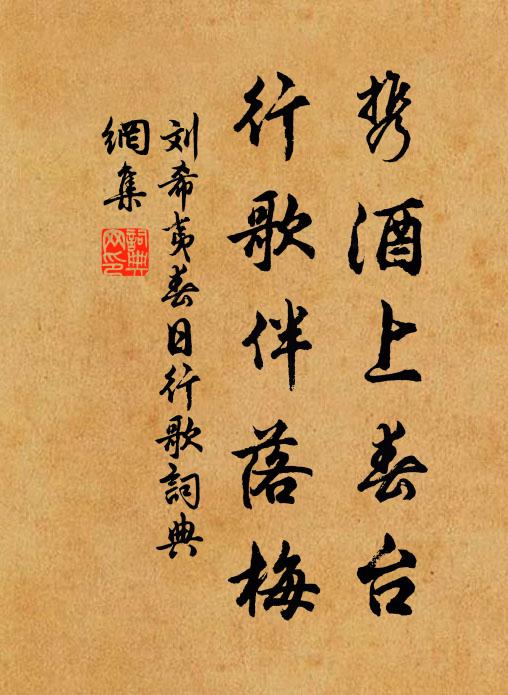 携酒上春台
行歌伴落梅
刘希夷春日行歌詞典
網集
詞典
网印